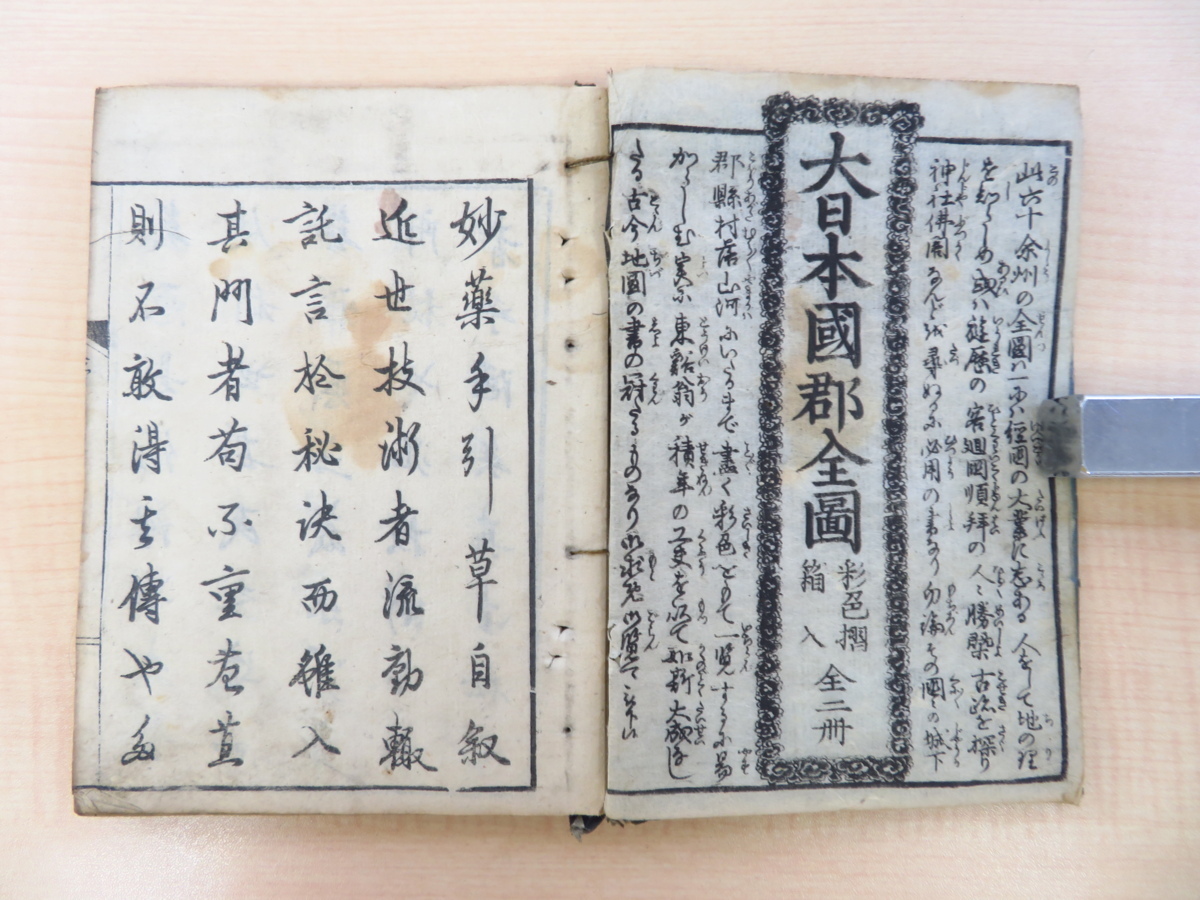 此六十余州の全圖ハ一ツハ經国の大業に志ある人をして地の理
を知らしめ或ハ遊歴の客廻國順拝の人〻勝槩古跡を探り
神社佛閣なんどを尋ぬるに必用の書なり勿論その國〻の城下
大日本國郡全圖
彩色摺
箱入
全二冊
郡縣村落山河にいたるまで盡く彩色をもて一覧するに易
からしむ実に東谿翁が積年の工夫を以て如斯大成なし
たる古今地圖の書の冠たるものなり御求メ御覧
妙藥手引草自叙
近世技術者流動輙
託言於秘決而雖入
其門者苟不重
則不敢得其傳也